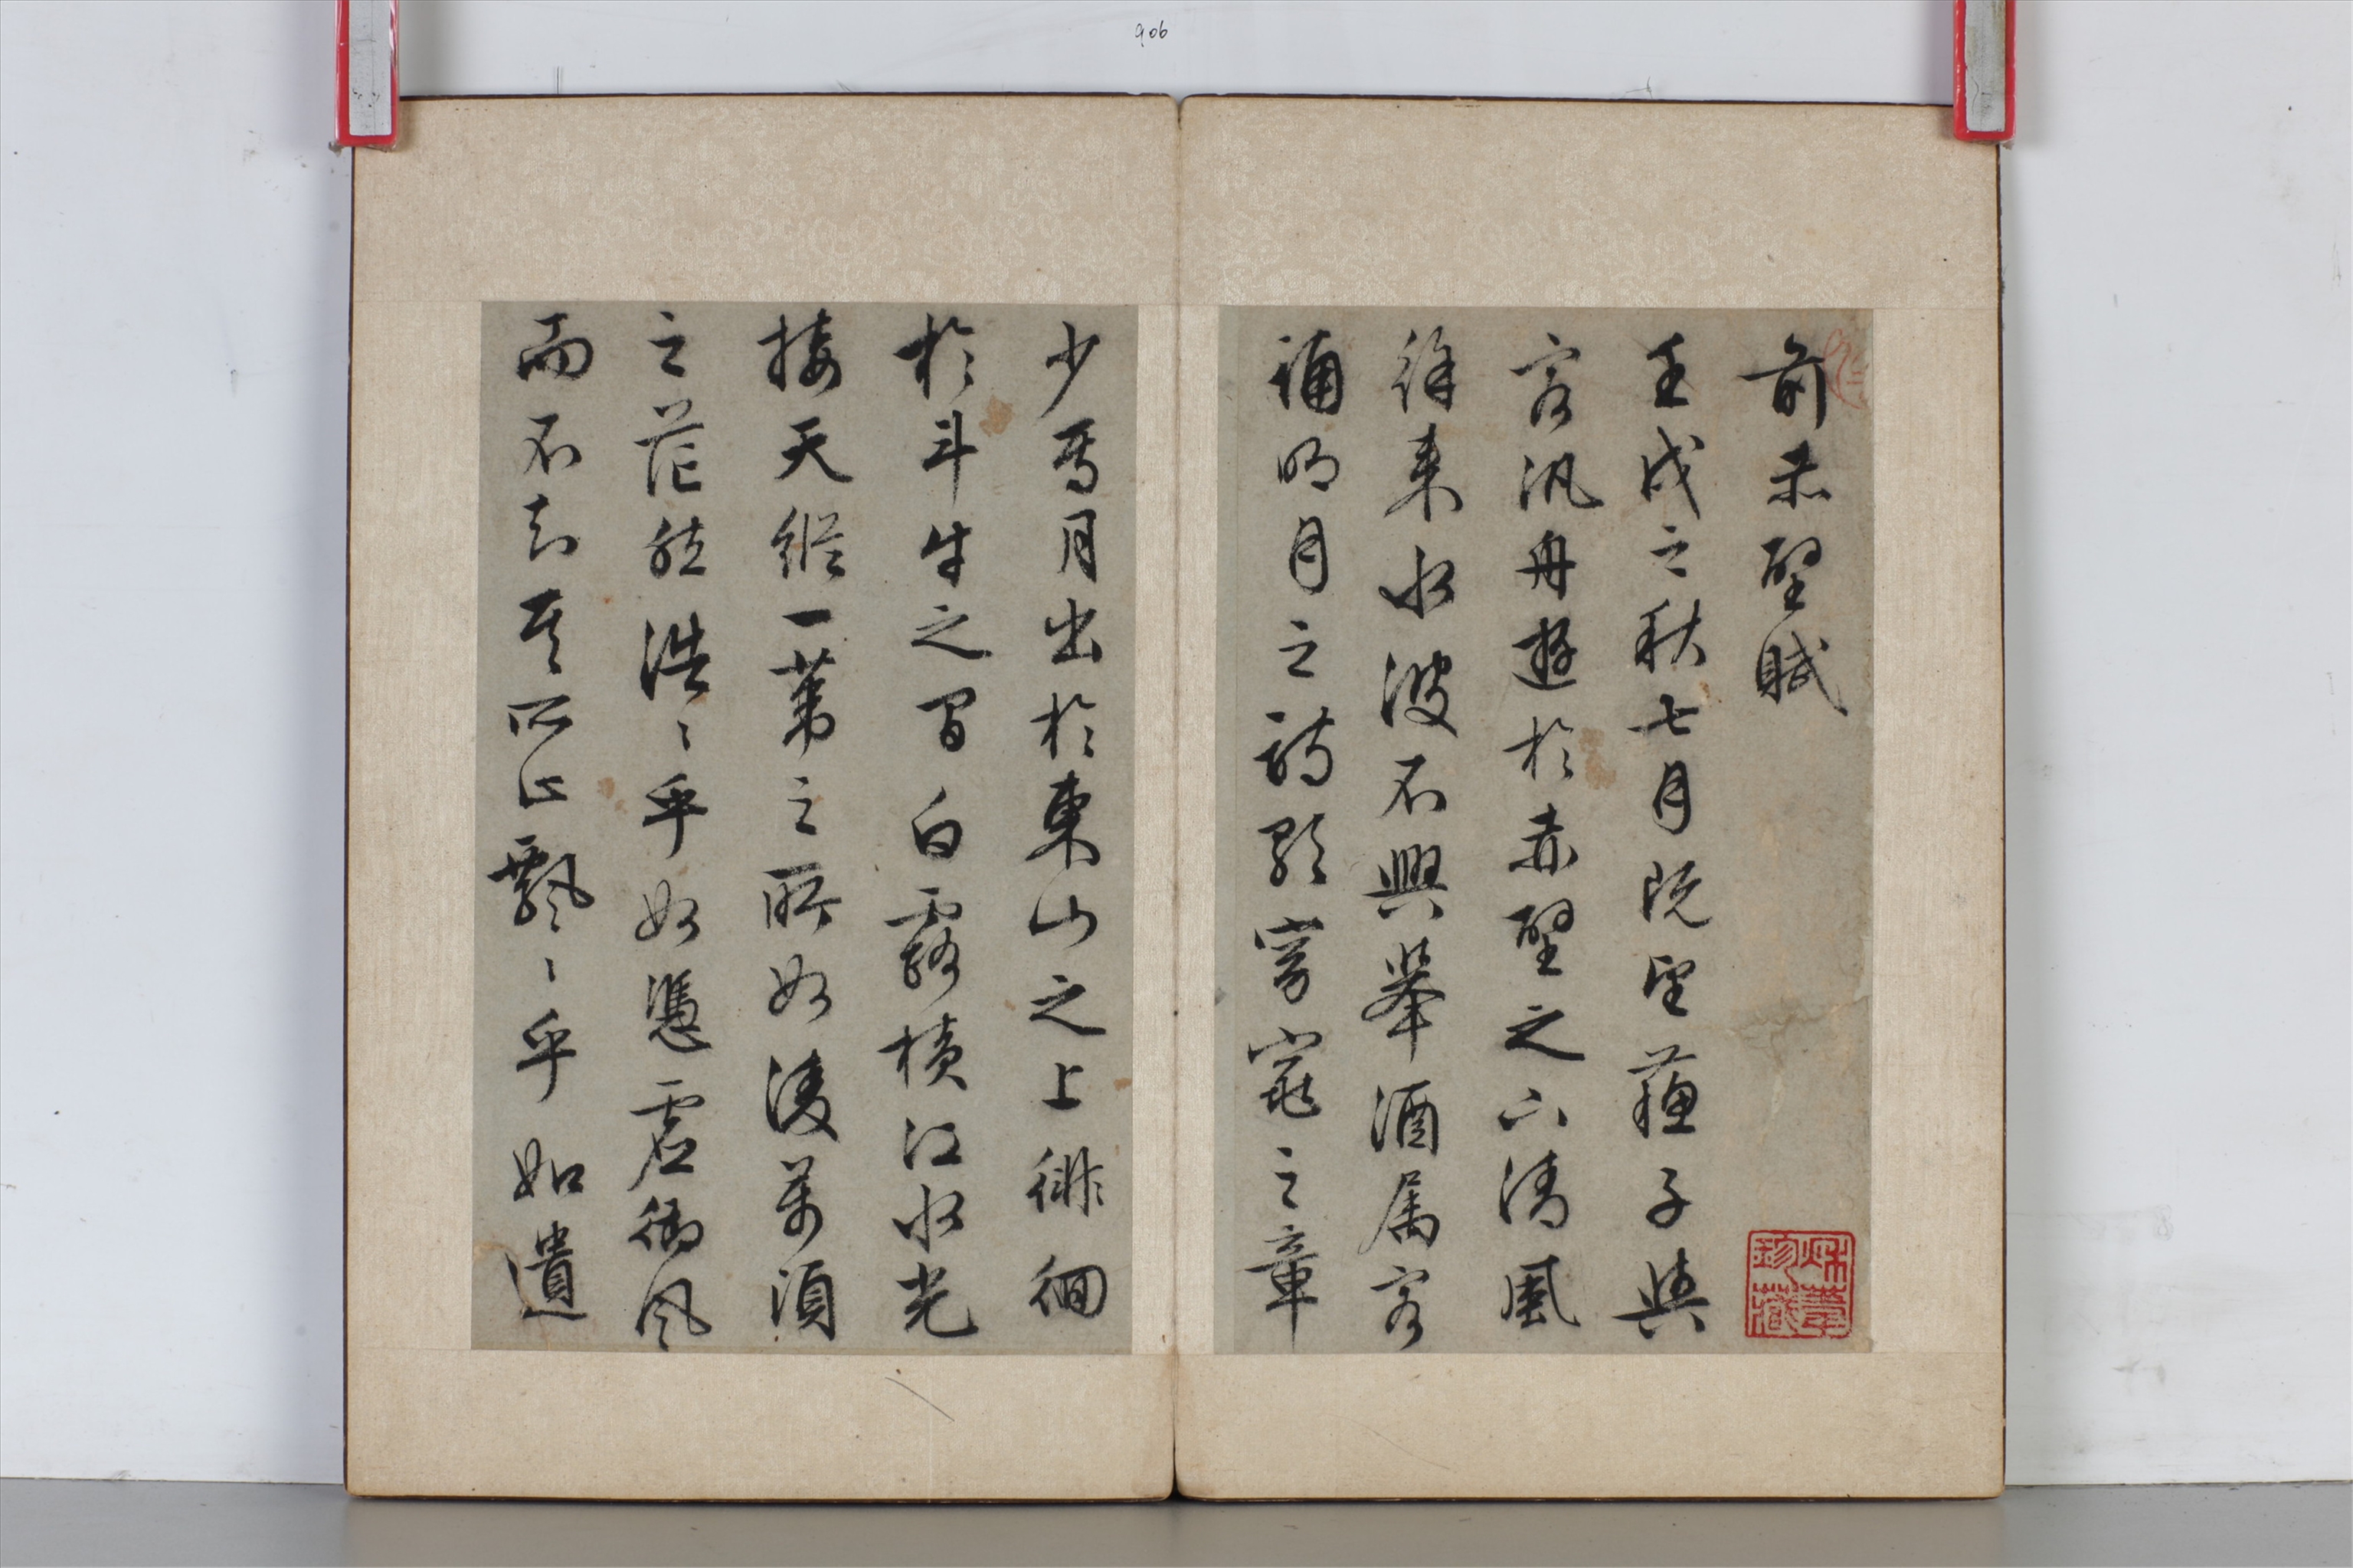 906
前赤壁賦
壬戌之秋七月既望蘓子與
客汎舟遊於赤壁之下清風
徐来水波不興舉酒属客
誦明月之詩歌窈窕之章
少焉月出於東山之上徘徊
於斗牛之間白露横江水光
接天縱一葦之所如淩萬頃
之茫然浩〻乎如憑虛御風
而不知其所止飄〻乎如遺
珍藏